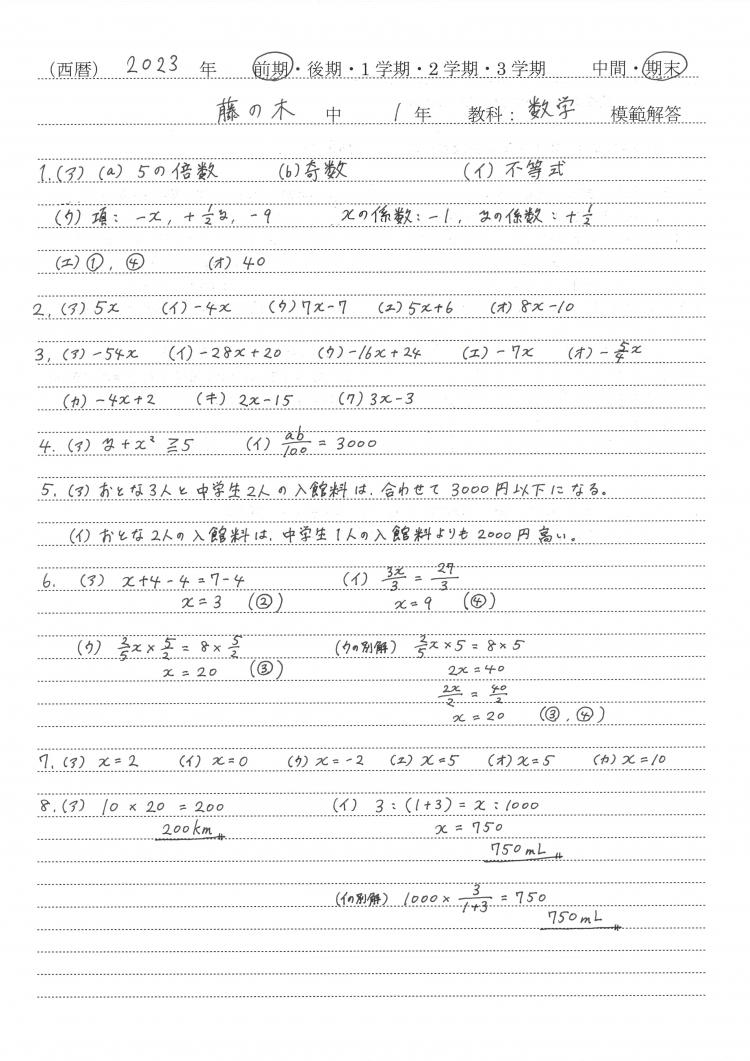 (西暦) 2023 年 前期・後期・1学期・2学期・3学期 中間・期末
藤の木 中 1 年 教科: 数学 模範解答
1.(ア) (a) 5の倍数 (b)奇数 (イ) 不等式
(ウ) 項: -x, +1/2y, -9 xの係数: -1, yの係数: +1/2
(エ) ①, ④ (オ) 40
2.(ア) 5x (イ) -4x (ウ) 7x-7 (エ) 5x+6 (オ) 8x-10
3.(ア) -54x (イ) -28x+20 (ウ) -16x+24 (エ) -7x (オ) -5/4x
(カ) -4x+2 (キ) 2x-15 (ク) 3x-3
4.(ア) y+x² ≧5 (イ) ab/100 = 3000
5.(ア) おとな3人と中学生2人の入館料は、合わせて3000円以下になる。
(イ) おとな2人の入館料は、中学生1人の入館料よりも2000円高い。
6. (ア) x+4-4=7-4 (イ) 3x/3 = 27/3
x=3 (②) x=9 (④)
(ウ) 2/5x×5/2 = 8×5/2 (ウの別解) 2/5x×5 = 8×5
x=20 (③) 2x=40
2x/2 = 40/2
x=20 (③, ④)
7.(ア) x=2 (イ) x=0 (ウ) x=-2 (エ) x=5 (オ) x=5 (カ) x=10
8.(ア) 10×20=200 (イ) 3:(1+3)=x:1000
200km x=750
750mL
(イの別解) 1000×3/1+3=750
750mL